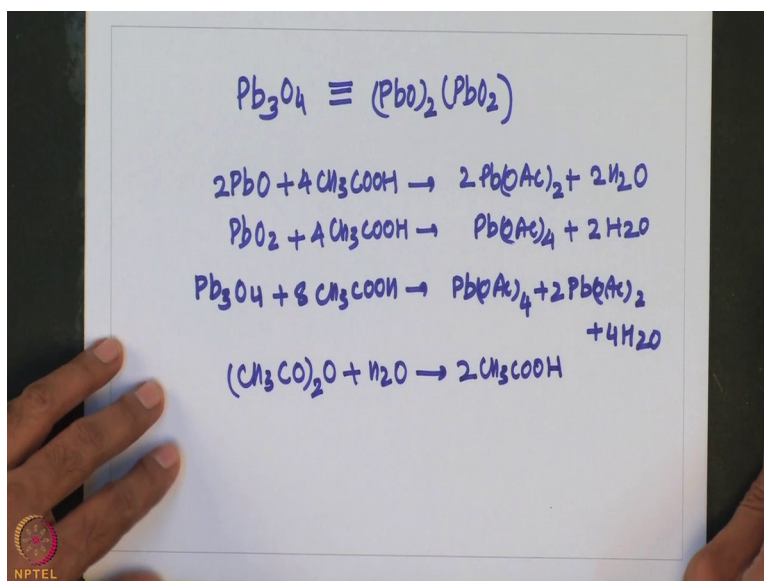 Pb₃O₄ ≡ (PbO)₂(PbO₂)
2PbO + 4CH₃COOH → 2Pb(OAc)₂ + 2H₂O
PbO₂ + 4CH₃COOH → Pb(OAc)₄ + 2H₂O
Pb₃O₄ + 8CH₃COOH → Pb(OAc)₄ + 2Pb(OAc)₂
+4H₂O
(CH₃CO)₂O + H₂O → 2CH₃COOH
NPTEL